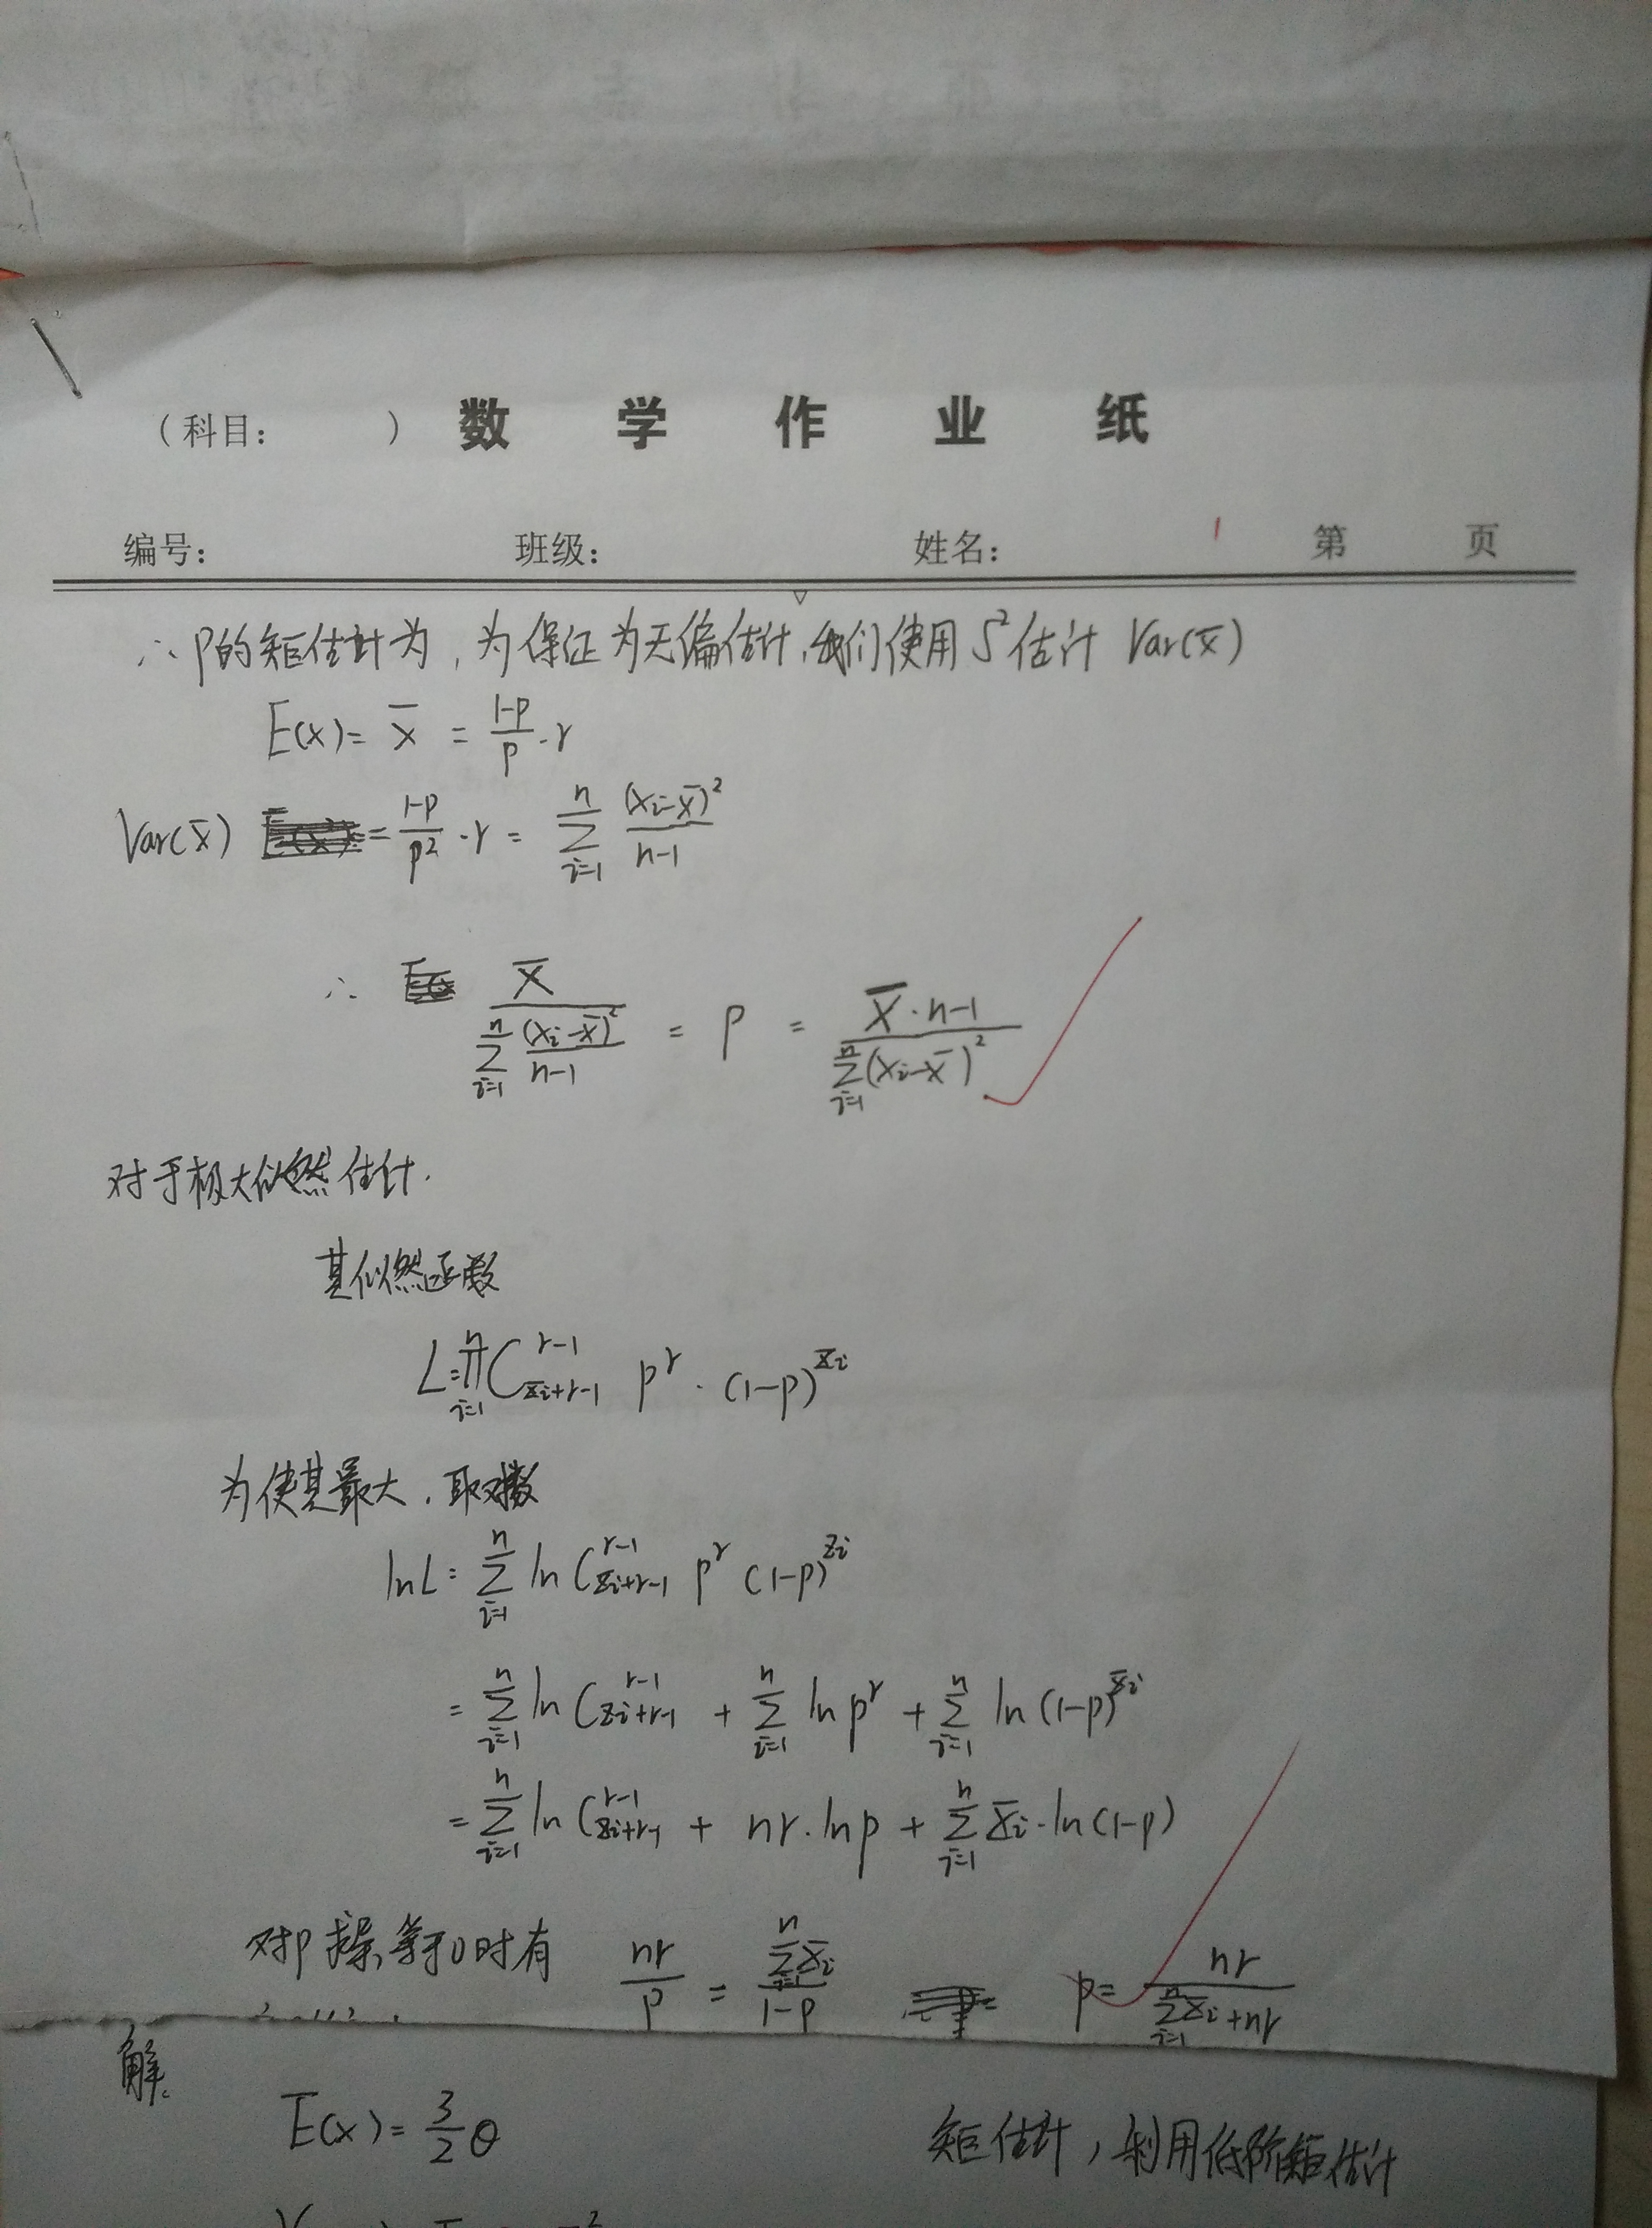 (科目: ) 数学作业纸
编号: 班级: 姓名: 第 页
∴ p的矩估计为, 为保证为无偏估计,我们使用 S² 估计 Var(x̄)
E(x) = x̄ = (1-p)/p · r
Var(x̄) = (1-p)/p² · r = Σ_{i=1}^{n} (xi-x̄)²/(n-1)
∴ x̄ / Σ_{i=1}^{n} (xi-x̄)²/(n-1) = p = x̄·n-1 / Σ_{i=1}^{n}(xi-x̄)²
对于极大似然估计.
其似然函数
L = Π_{i=1}^{n} C_{xi+r-1}^{r-1} p^r · (1-p)^{xi}
为使其最大, 取对数
lnL = Σ_{i=1}^{n} ln C_{xi+r-1}^{r-1} p^r (1-p)^{xi}
= Σ_{i=1}^{n} ln C_{xi+r-1}^{r-1} + Σ_{i=1}^{n} ln p^r + Σ_{i=1}^{n} ln (1-p)^{xi}
= Σ_{i=1}^{n} ln C_{xi+r-1}^{r-1} + nr·ln p + Σ_{i=1}^{n} xi·ln(1-p)
对p求导,等于0时有 nr/p = Σ_{i=1}^{n} xi/(1-p) p = nr / (Σ_{i=1}^{n} xi + nr)
解.
E(x) = 3/2 θ 矩估计, 利用低阶矩估计